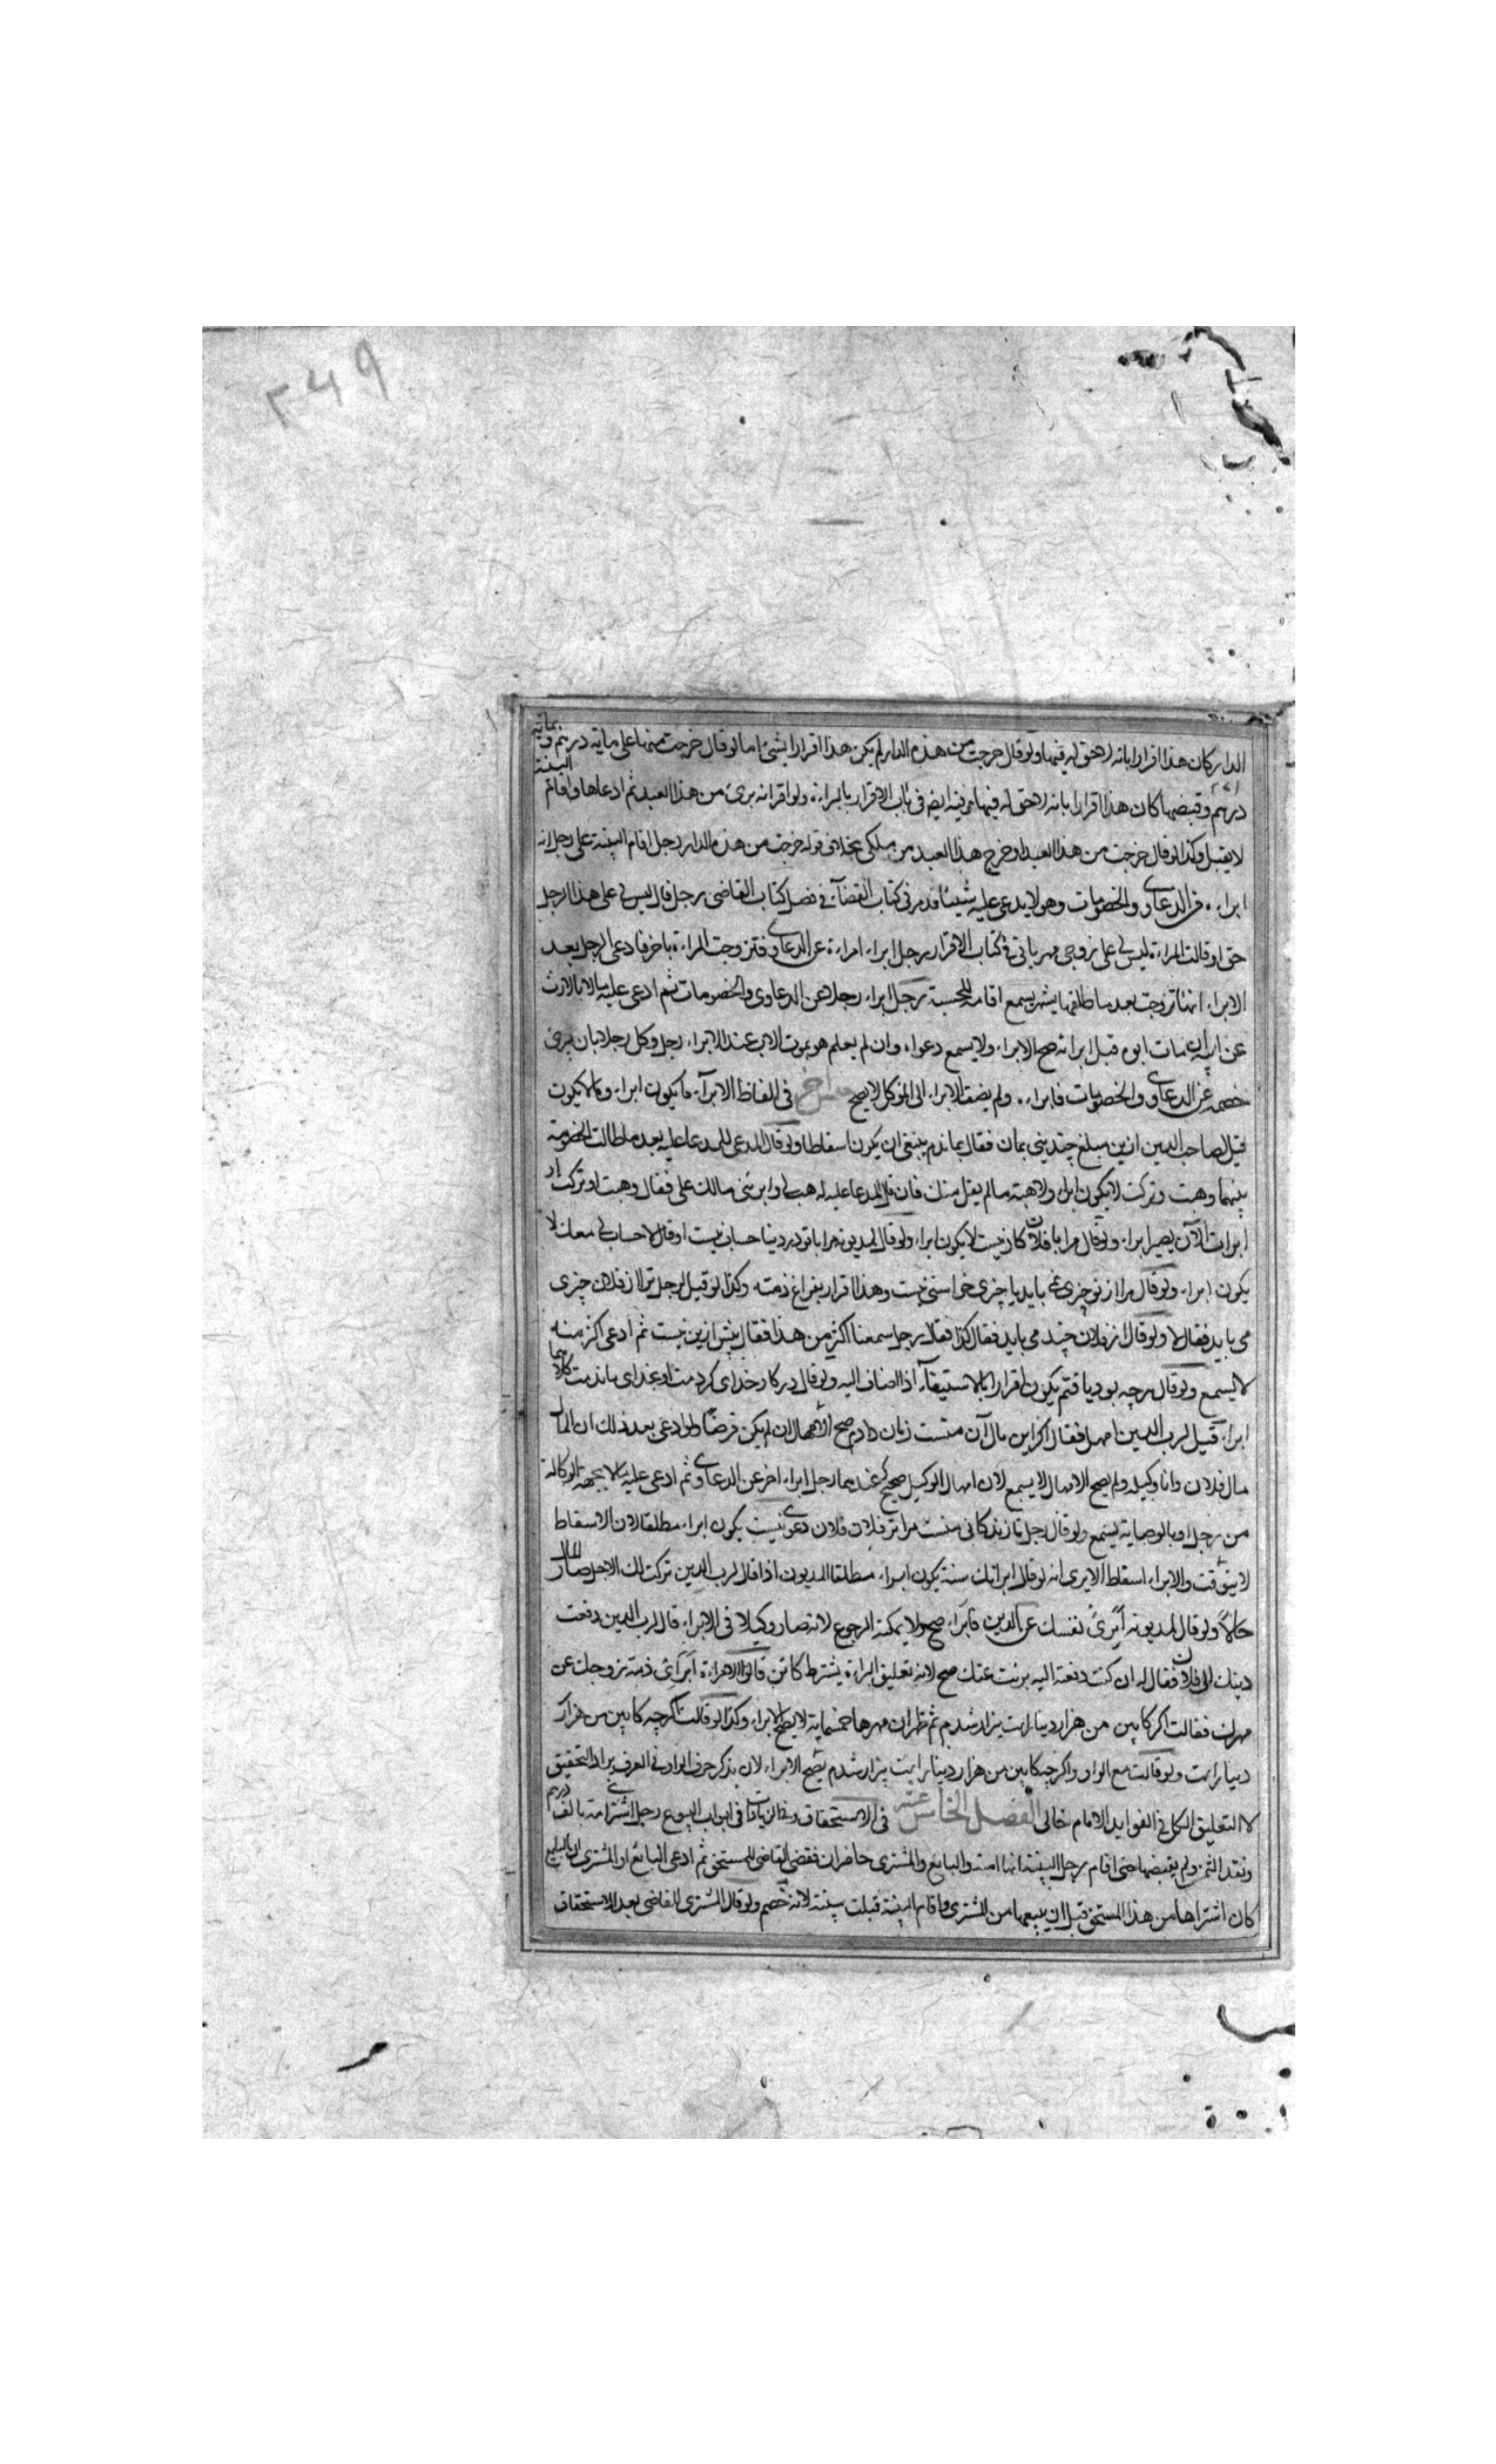 ۳۴۹
الدار كان هذا اقرارا بانه لا حق له فيها ولو قال خرجت من هذه الدار لم يكن هذا اقرارا بشئ اما لو قال خرجت منها على ماية درهم او بماية
درهم وقبضها كان هذا اقرارا بانه لا حق له فيها في باب الاقرار بالبراءة ولو اقر انه برئ من هذا العبد ثم ادعاها واقام البينة
لا يقبل وكذا لو قال خرجت من هذا العبد او خرج هذا العبد من ملكي بخلاف قوله خرجت من هذه الدار رجل اقام البينة على رجل انه
ابراءه من الدعاوى والخصومات وهو لا يدعى عليه شيئا قد مر في كتاب القضاء في فصل كتاب القاضى رجل قال ليس لي على هذا الرجل
حق او قالت المراءة ليس لي على زوجي مهر ياتى في كتاب الاقرار رجل ابراء امراءة عن الدعاوى فتزوجت المراءة باخر فادعى الرجل بعد
الابراء انها تزوجت بعد ما طلقها بشهر يسمع اقامة للحسبة رجل ابراء رجلا عن الدعاوى والخصومات ثم ادعى عليه مالا بالارث
عن ابيه ان مات ابوه قبل ابرائه صح الابراء ولا يسمع دعواه وان لم يعلم هو بموت الاب عند الابراء رجل وكل رجلا بان يبرئ
خصمه عن الدعاوى والخصومات فابراءه ولم يضف الابراء الى الموكل لا يصح في الفاظ الابراء ما يكون ابراء وما لا يكون
قيل لصاحب الدين ازين مبلغ چنديني بمان فقال بماندم ينبغى ان يكون اسقاطا ولو قال المدعى للمدعا عليه بعد ما طالت الخصومة
بينهما وهبت وتركت لا يكون ابراء ولا هبة ما لم يقل منك فان قال المدعا عليه له هب لي وابرئنى مالك على فقال وهبت او تركت او
ابرات الآن يصير ابراء ولو قال مرا با فلان كار نيست لا يكون ابراء ولو قال لمديونه مرا با تو در دنيا حساب نيست او قال لا حساب لي معك لا
يكون ابراء ولو قال مرا از تو چيزى نمى بايد يا چيزى خواستنى نيست وهذا اقرار بفراغ ذمته وكذا لو قيل لرجل ترا از فلان چيزى
مى بايد فقال لا ولو قال از فلان چند مى بايد فقال كذا فقال رجل سمعنا اكثر من هذا فقال بيش ازين نيست ثم ادعى اكثر منه
لا يسمع ولو قال هر چه بود يافتم يكون اقرارا بالاستيفاء اذا اضاف اليه ولو قال در كار خداى كردمت او بخداى ماندمت كلاهما
ابراء قيل لرب الدين امهل فقال اكر اين مال آن منست زمان دادم صح الامهال ان لم يكن قرضا ولو ادعى بعد ذلك ان المال
مال فلان وانا وكيله ولم يصح الامهال لا يسمع لان امهال الوكيل صحيح عندهما رجل ابراء اخر عن الدعاوى ثم ادعى عليه مالا بجهة الوكالة
من رجل او بالوصاية يسمع ولو قال رجل تا زندكانى منست مرا بر فلان دعوى نيست يكون ابراء مطلقا لان الاسقاط
لا يتوقت والابراء اسقاط الا يرى انه لو قال ابراتك سنة يكون ابراء مطلقا المديون اذا قال لرب الدين تركت لك الاجل صار المال
حالا ولو قال لمديونه ابرئ نفسك عن الدين فابراء صح ولا يمكنه الرجوع لانه صار وكيلا في الابراء قال لرب الدين دفعت
دينك الى فلان فقال له ان كنت دفعته اليه برئت عنك صح لانه تعليق البراءة بشرط كائن قالوا لامراءة ابرأتى ذمة زوجك عن
مهرك فقالت اكر كابين من هزار دينار است بيزار شدم ثم ظهر ان مهرها خمسماية لا يصح الابراء وكذا لو قالت اكر چه كابين من هزار
دينار است ولو قالت مع الواو واكر چه كابين من هزار دينار است بيزار شدم يصح الابراء لان بذكر حرف الواو في العرف يراد التحقيق
لا التعليق الكل في الفوايد الامام خالى الفصل الخامس عشر في الاستحقاق وفي الزيادات في ابواب البيوع رجل اشترى امة بالف درهم
ونقد الثمن ولم يقبضها حتى اقام رجل البينة انها امته والبايع والمشترى حاضران فقضى القاضى للمستحق ثم ادعى البائع او المشترى ان البايع
كان اشتراها من هذا المستحق قبل ان يبيعها من المشترى واقام البينة قبلت بينته لانه خصم ولو قال المشترى للقاضى بعد الاستحقاق